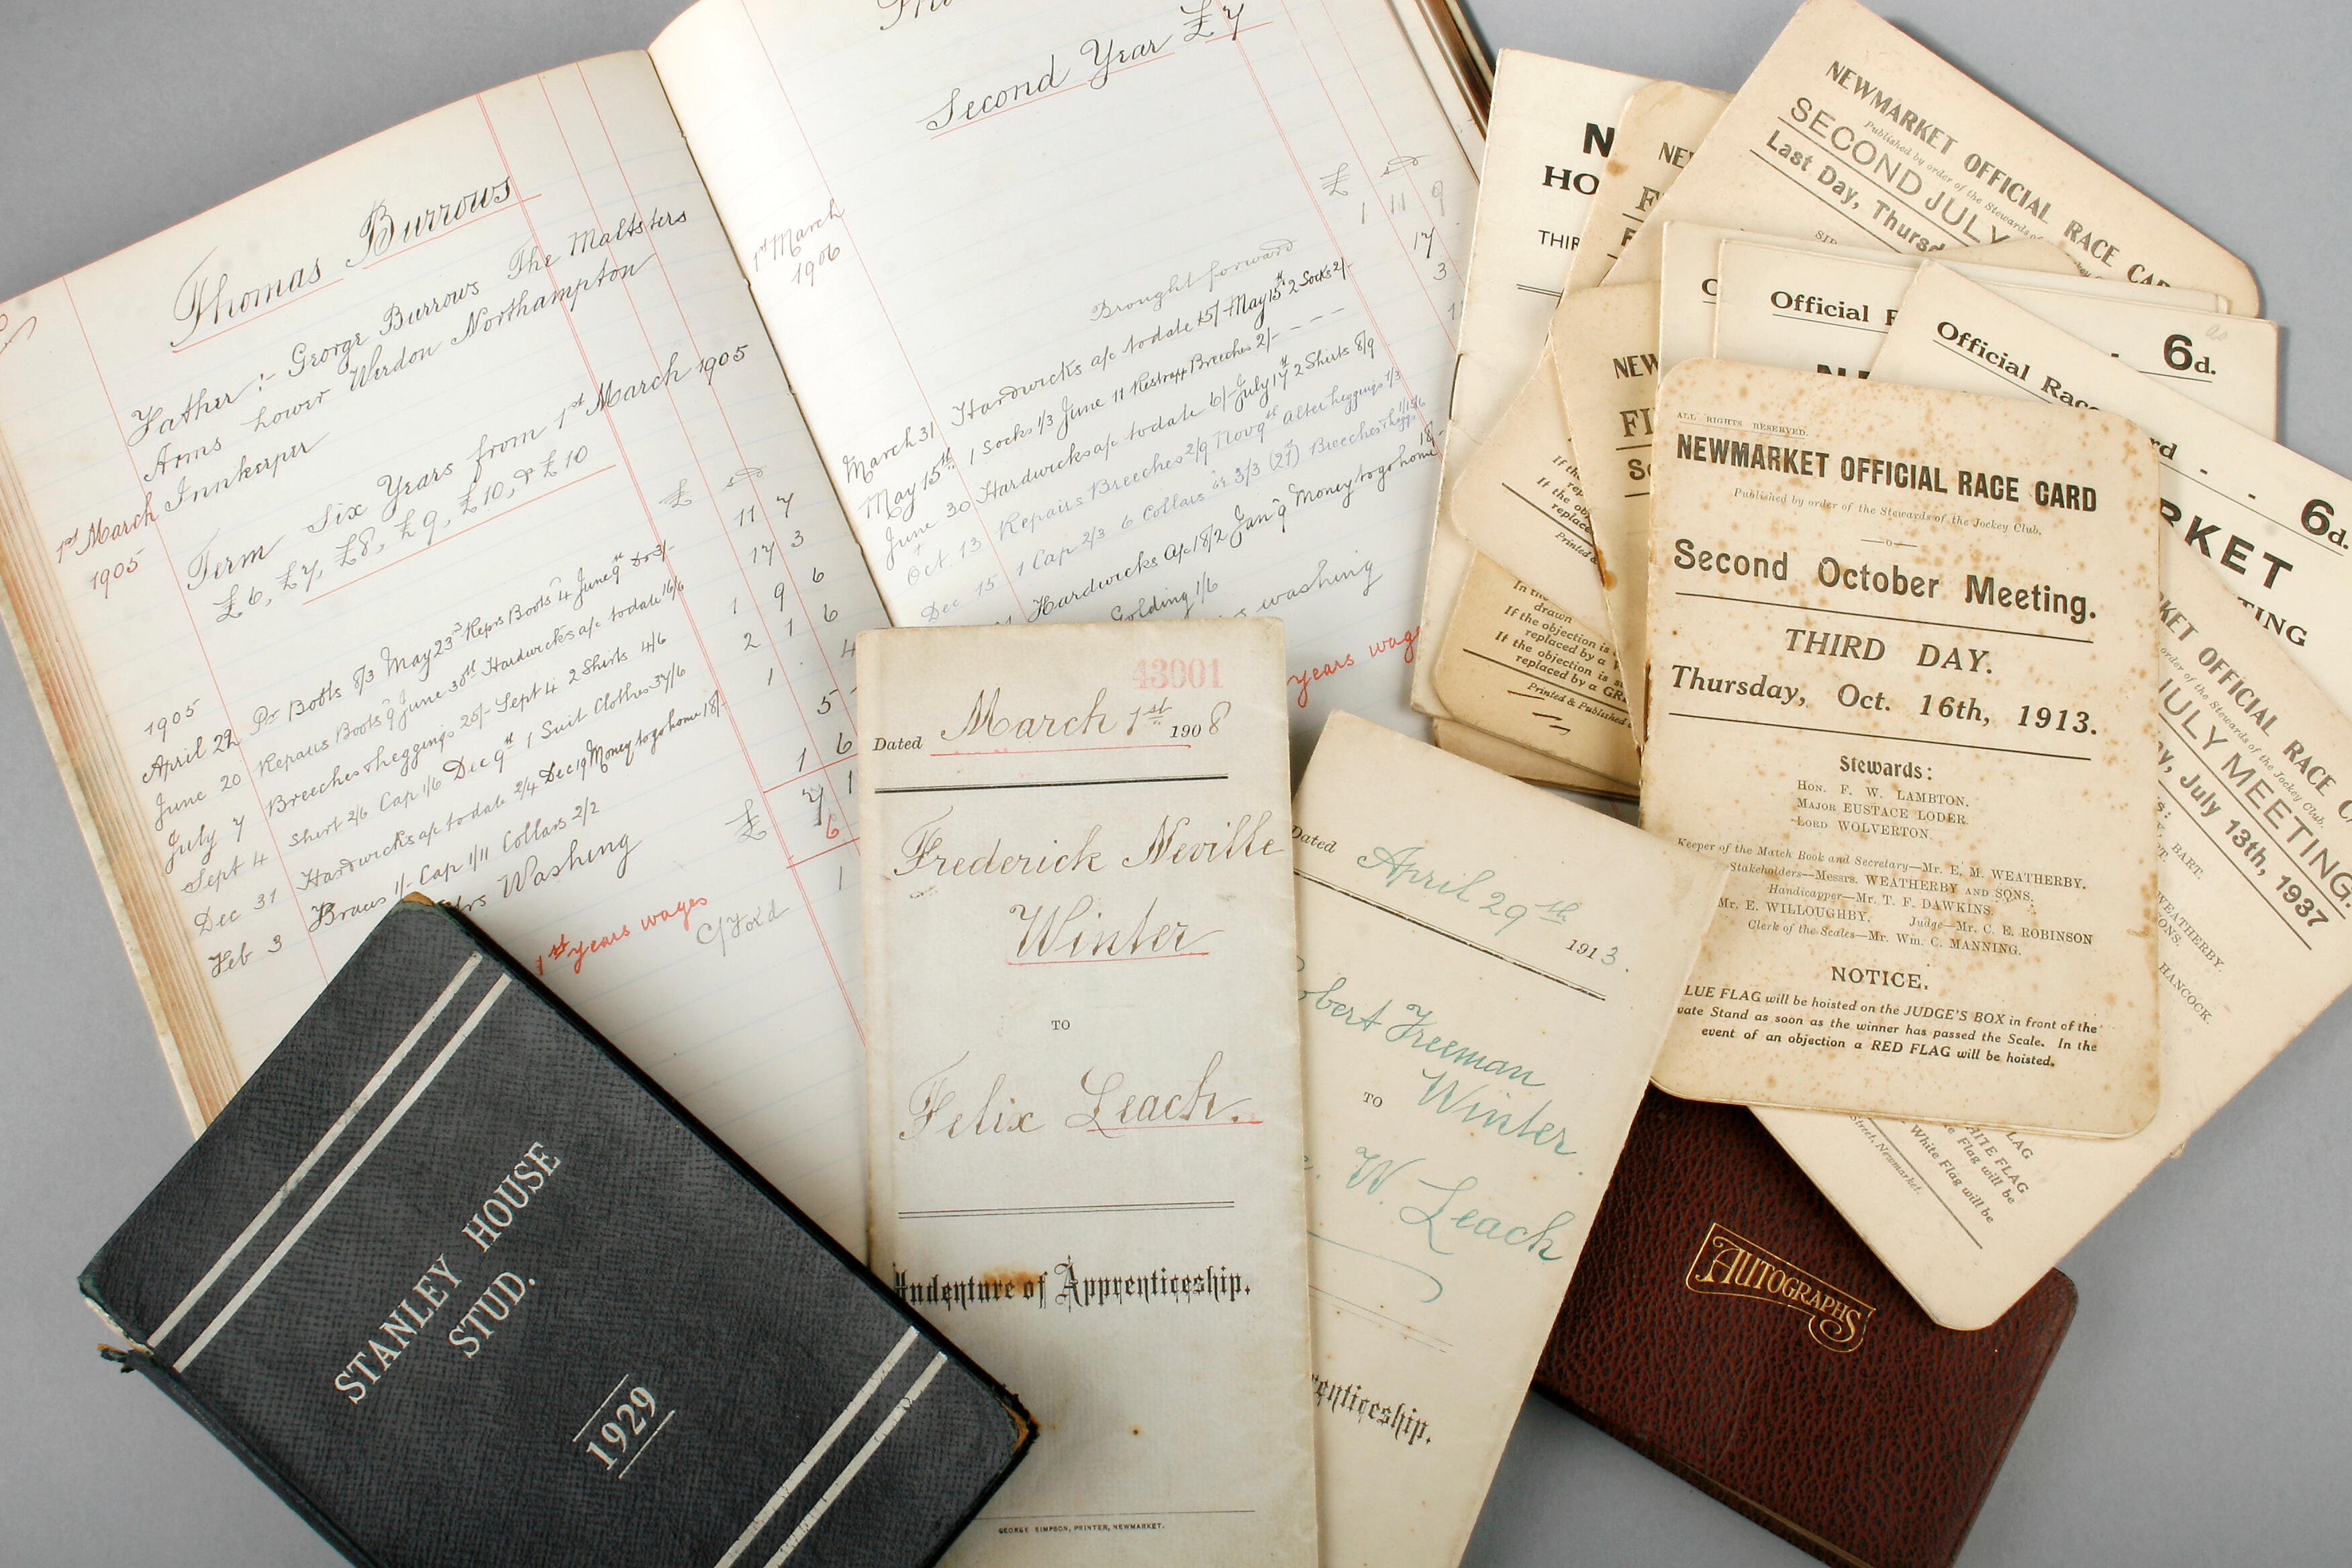 Thomas Burrows
Father :- George Burrows The Maltsters
Arms Lower Weedon Northampton
Innkeeper
1st March
1905
Term Six Years from 1st March 1905
£6, £7, £8, £9, £10, & £10
£ s d
1905
April 22 Pr Boots 8/3 May 23rd Reprs Boots 4 June 9th Do 3/- 11 7
June 20 Repairs Boots 9 June 30th Hardwicks a/c to date 16/6 17 3
July 7 Breeches & Leggings 25/- Sept 4 2 Shirts 4/6 1 9 6
Sept 4 Shirt 2/6 Cap 1/6 Dec 9th 1 Suit Clothes 37/6 2 1 6
Dec 31 Hardwicks a/c to date 2/4 Dec 19 Money to go home 18/- 1 . 4
Feb 3 Braces 1/- Cap 1/11 Collars 2/2 5
Washing 1 6
£ 7 1
1st years wages 6
C/Ford 1
Second Year £7
£ s d
1st March
1906
Brought forward 1 11 9
March 31 Hardwicks a/c to date 15/- May 15th 2 Socks 2/- 17
May 15th 1 Socks 1/3 June 11 Breeches 2/- 3
June 30 Hardwicks a/c to date 6/- July 17th 2 Shirts 8/9
Oct. 13 Repairs Breeches 2/9 Nov 9th Alter Leggings 1/3
Dec 15 1 Cap 2/3 6 Collars 3/3 (27th) Breeches & Leggs
Hardwicks a/c 18/2 Jan 9th Money to go home 18/-
Golding 1/6
washing
years wages
STANLEY HOUSE
STUD.
1929
43001
Dated March 1st 1908
Frederick Neville
Winter
TO
Felix Leach.
Indenture of Apprenticeship.
GEORGE SIMPSON, PRINTER, NEWMARKET.
Dated April 29th 1913.
obert Freeman
Winter.
TO
W. Leach
renticeship.
NEWMARKET OFFICIAL RACE CAR
Published by order of the Stewards of
SECOND JULY
Last Day, Thursd
SIR
N
HO
THIR
NE
F
Official
6d.
Official Race
rd - - 6d.
RKET
TING
NEW
FI
If the
If the ob
replace
Printed &
In the
drawn
If the objection is
replaced by a
If the objection is s
replaced by a GR
Printed & Published
ALL RIGHTS RESERVED.
NEWMARKET OFFICIAL RACE CARD
Published by order of the Stewards of the Jockey Club.
Second October Meeting.
THIRD DAY.
Thursday, Oct. 16th, 1913.
Stewards:
HON. F. W. LAMBTON.
MAJOR EUSTACE LODER.
LORD WOLVERTON.
Keeper of the Match Book and Secretary—Mr. E. M. WEATHERBY.
Stakeholders—Messrs. WEATHERBY AND SONS.
Handicapper—Mr. T. F. DAWKINS.
Mr. E. WILLOUGHBY. Judge—Mr. C. E. ROBINSON
Clerk of the Scales—Mr. Wm. C. MANNING.
NOTICE.
LUE FLAG will be hoisted on the JUDGE'S BOX in front of the
vate Stand as soon as the winner has passed the Scale. In the
event of an objection a RED FLAG will be hoisted.
KET OFFICIAL RACE C
order of the Stewards of the Jockey Club.
JULY MEETING.
y, July 13th, 1937
BART.
WEATHERBY.
ONS.
HANCOCK.
LAG
HITE FLAG
e Flag will be
White Flag will be
Street, Newmarket.
AUTOGRAPHS